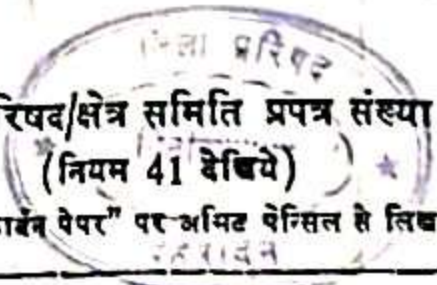 जिला परिषद
रिषद/क्षेत्र समिति प्रपत्र संख्या
(नियम 41 देखिये)
ार्बन पेपर" पर अमिट पेन्सिल से लिखा